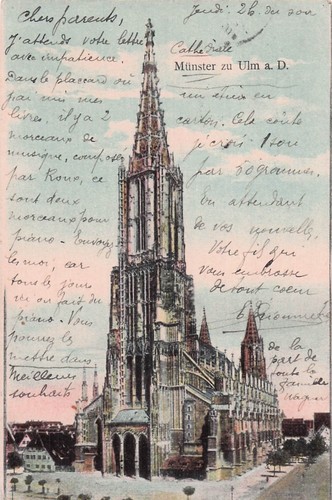 Jeudi 26 du soir
Chers parents,
J'attends votre lettre
avec impatience.
Dans le placard où
j'ai mis mes
livres, il y a 2
morceaux de
musique, composés
par Roux, ce
sont deux
morceaux pour
piano. Envoyez
les moi, car
tous les jours
on fait du
piano. Vous
pourrez les
mettre dans
Cathédrale
Münster zu Ulm a. D.
un étui en
carton. Cela coûte
je crois 1 sou
par 50 grammes.
En attendant
de vos nouvelles,
Votre fils qui
vous embrasse
de tout coeur
Meilleurs
souhaits
de la
part de
toute la